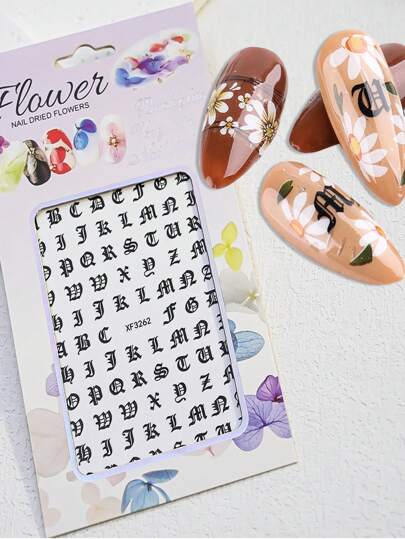 Flower
NAIL DRIED FLOWERS
B C D E F G
H I J K L M N
O P Q R S T U
V W X Y Z
H I J K L M N
A B C XF3262 F G
H I J K L M N
O P Q R S T U
V W X Y Z
H I J K L M N
U
M